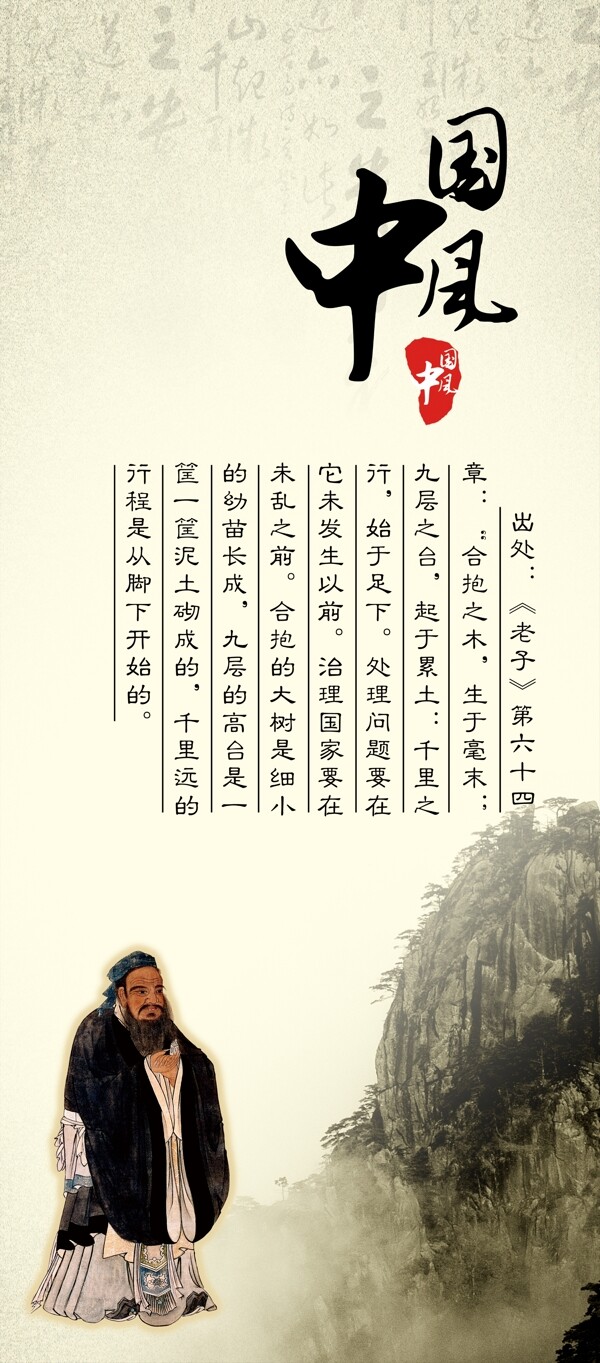 中国风
中国风
出处：《老子》第六十四
章：“合抱之木，生于毫末；
九层之台，起于累土；千里之
行，始于足下。处理问题要在
它未发生以前。治理国家要在
未乱之前。合抱的大树是细小
的幼苗长成，九层的高台是一
筐一筐泥土砌成的，千里远的
行程是从脚下开始的。